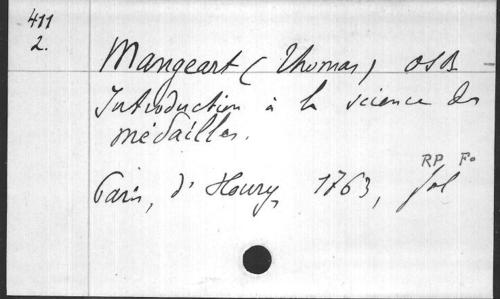 411
2.
Mangeart (Thomas) OSB
Introduction à la science des
médailles.
RP Fo
Paris, d'Houry, 1763, fol